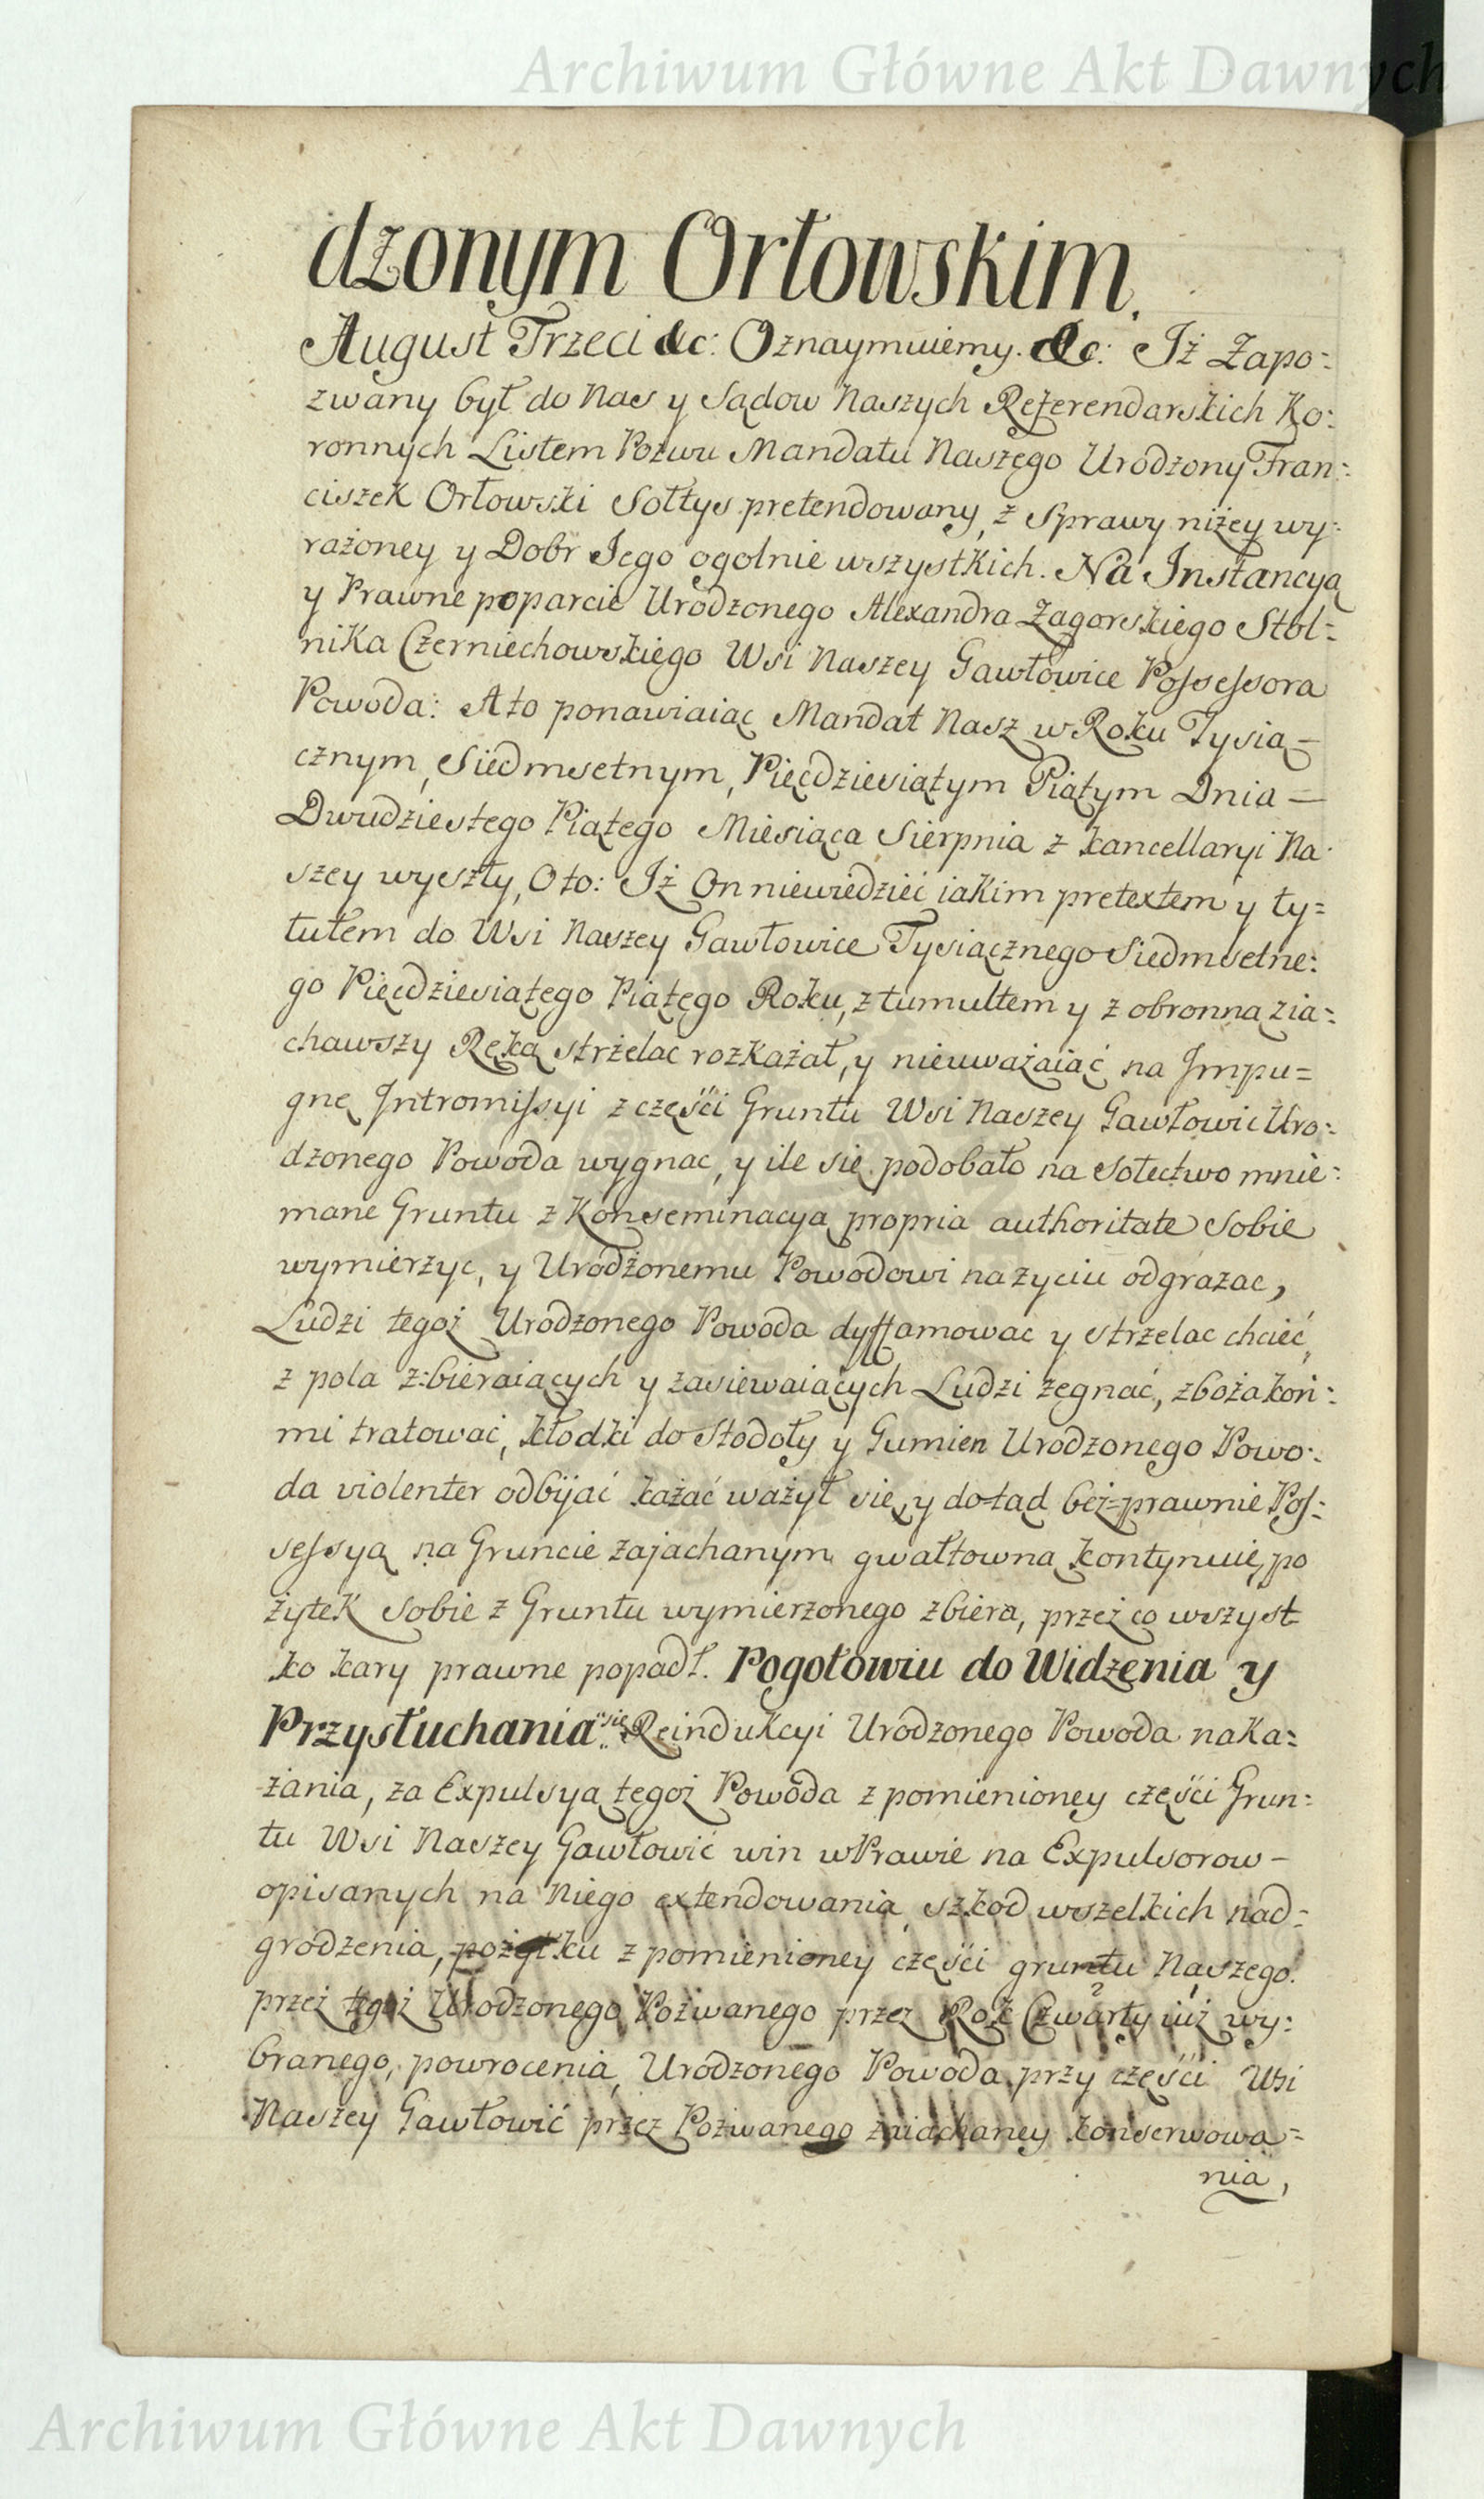 Archiwum Główne Akt Dawnych
dzonym Orłowskim.
August Trzeci &c: Oznaymuiemy. &c: Iż Zapo=
zwany był do Nas y Sądow Naszych Referendarskich Ko:
ronnych Listem Pozwu Mandatu Naszego Urodzony Fran=
ciszek Orłowski Sołtys pretendowany, z Sprawy niżey wy:
rażoney y Dobr Jego ogolnie wszystkich. Na Instancyą
y Prawne poparcie Urodzonego Alexandra Zagorskiego Stol=
nika Czerniechowskiego Wsi Naszey Gawłowice Possessora
Powoda: A to ponawiaiąc Mandat Nasz w Roku Tysią=
cznym, Siedmsetnym, Pięcdziesiątym Piątym Dnia —
Dwudziestego Piątego Miesiąca Sierpnia z kancellaryi Na:
szey wyszły, Oto: Iż On niewiedzieć iakim pretextem y ty=
tułem do Wsi Naszey Gawłowice Tysiącznego Siedmsetne:
go Pięcdziesiątego Piątego Roku, z tumultem y z obronną zia=
chawszy Ręką strzelac rozkazał, y nieuważaiąć na Impu=
gnę Intromissyi z części Gruntu Wsi Naszey Gawłowic Uro:
dzonego Powoda wygnac, y ile się podobało na Sołectwo mnie:
mane Gruntu z Konseminacyą propria authoritate Sobie
wymierzyc, y Urodzonemu Powodowi na zyciu odgrazac,
Ludzi tegoż Urodzonego Powoda dyffamowac y strzelac chcieć,
z pola z:bieraiących y zasiewaiących Ludzi zegnać, zboża koń:
mi tratować, kłodki do Stodoły y Gumien Urodzonego Powo:
da violenter odbijać kazać ważył się, y do=tąd bez=prawnie Pos:
sessyą na Gruncie zajachanym gwałtowną kontynuie, po
żytek Sobie z Gruntu wymierzonego zbiera, przez co wszyst
ko kary prawne popadł. Pogotowiu do Widzenia y
Przysłuchania się Reindukcyi Urodzonego Powoda naka=
zania, za Expulsyą tegoż Powoda z pomienioney części Grun:
tu Wsi Naszey Gawłowić win w Prawie na Expulsorow —
opisanych na Niego extendowania, szkod wszelkich nad=
grodzenia, pożytku z pomienioney części gruntu Naszego
przez tegoż Urodzonego Pozwanego przez Rok Czwarty iuż wy:
branego, powrocenia, Urodzonego Powoda przy części Wsi
Naszey Gawłowić przez Pozwanego zaiachaney konserwowa=
nia,
Archiwum Główne Akt Dawnych